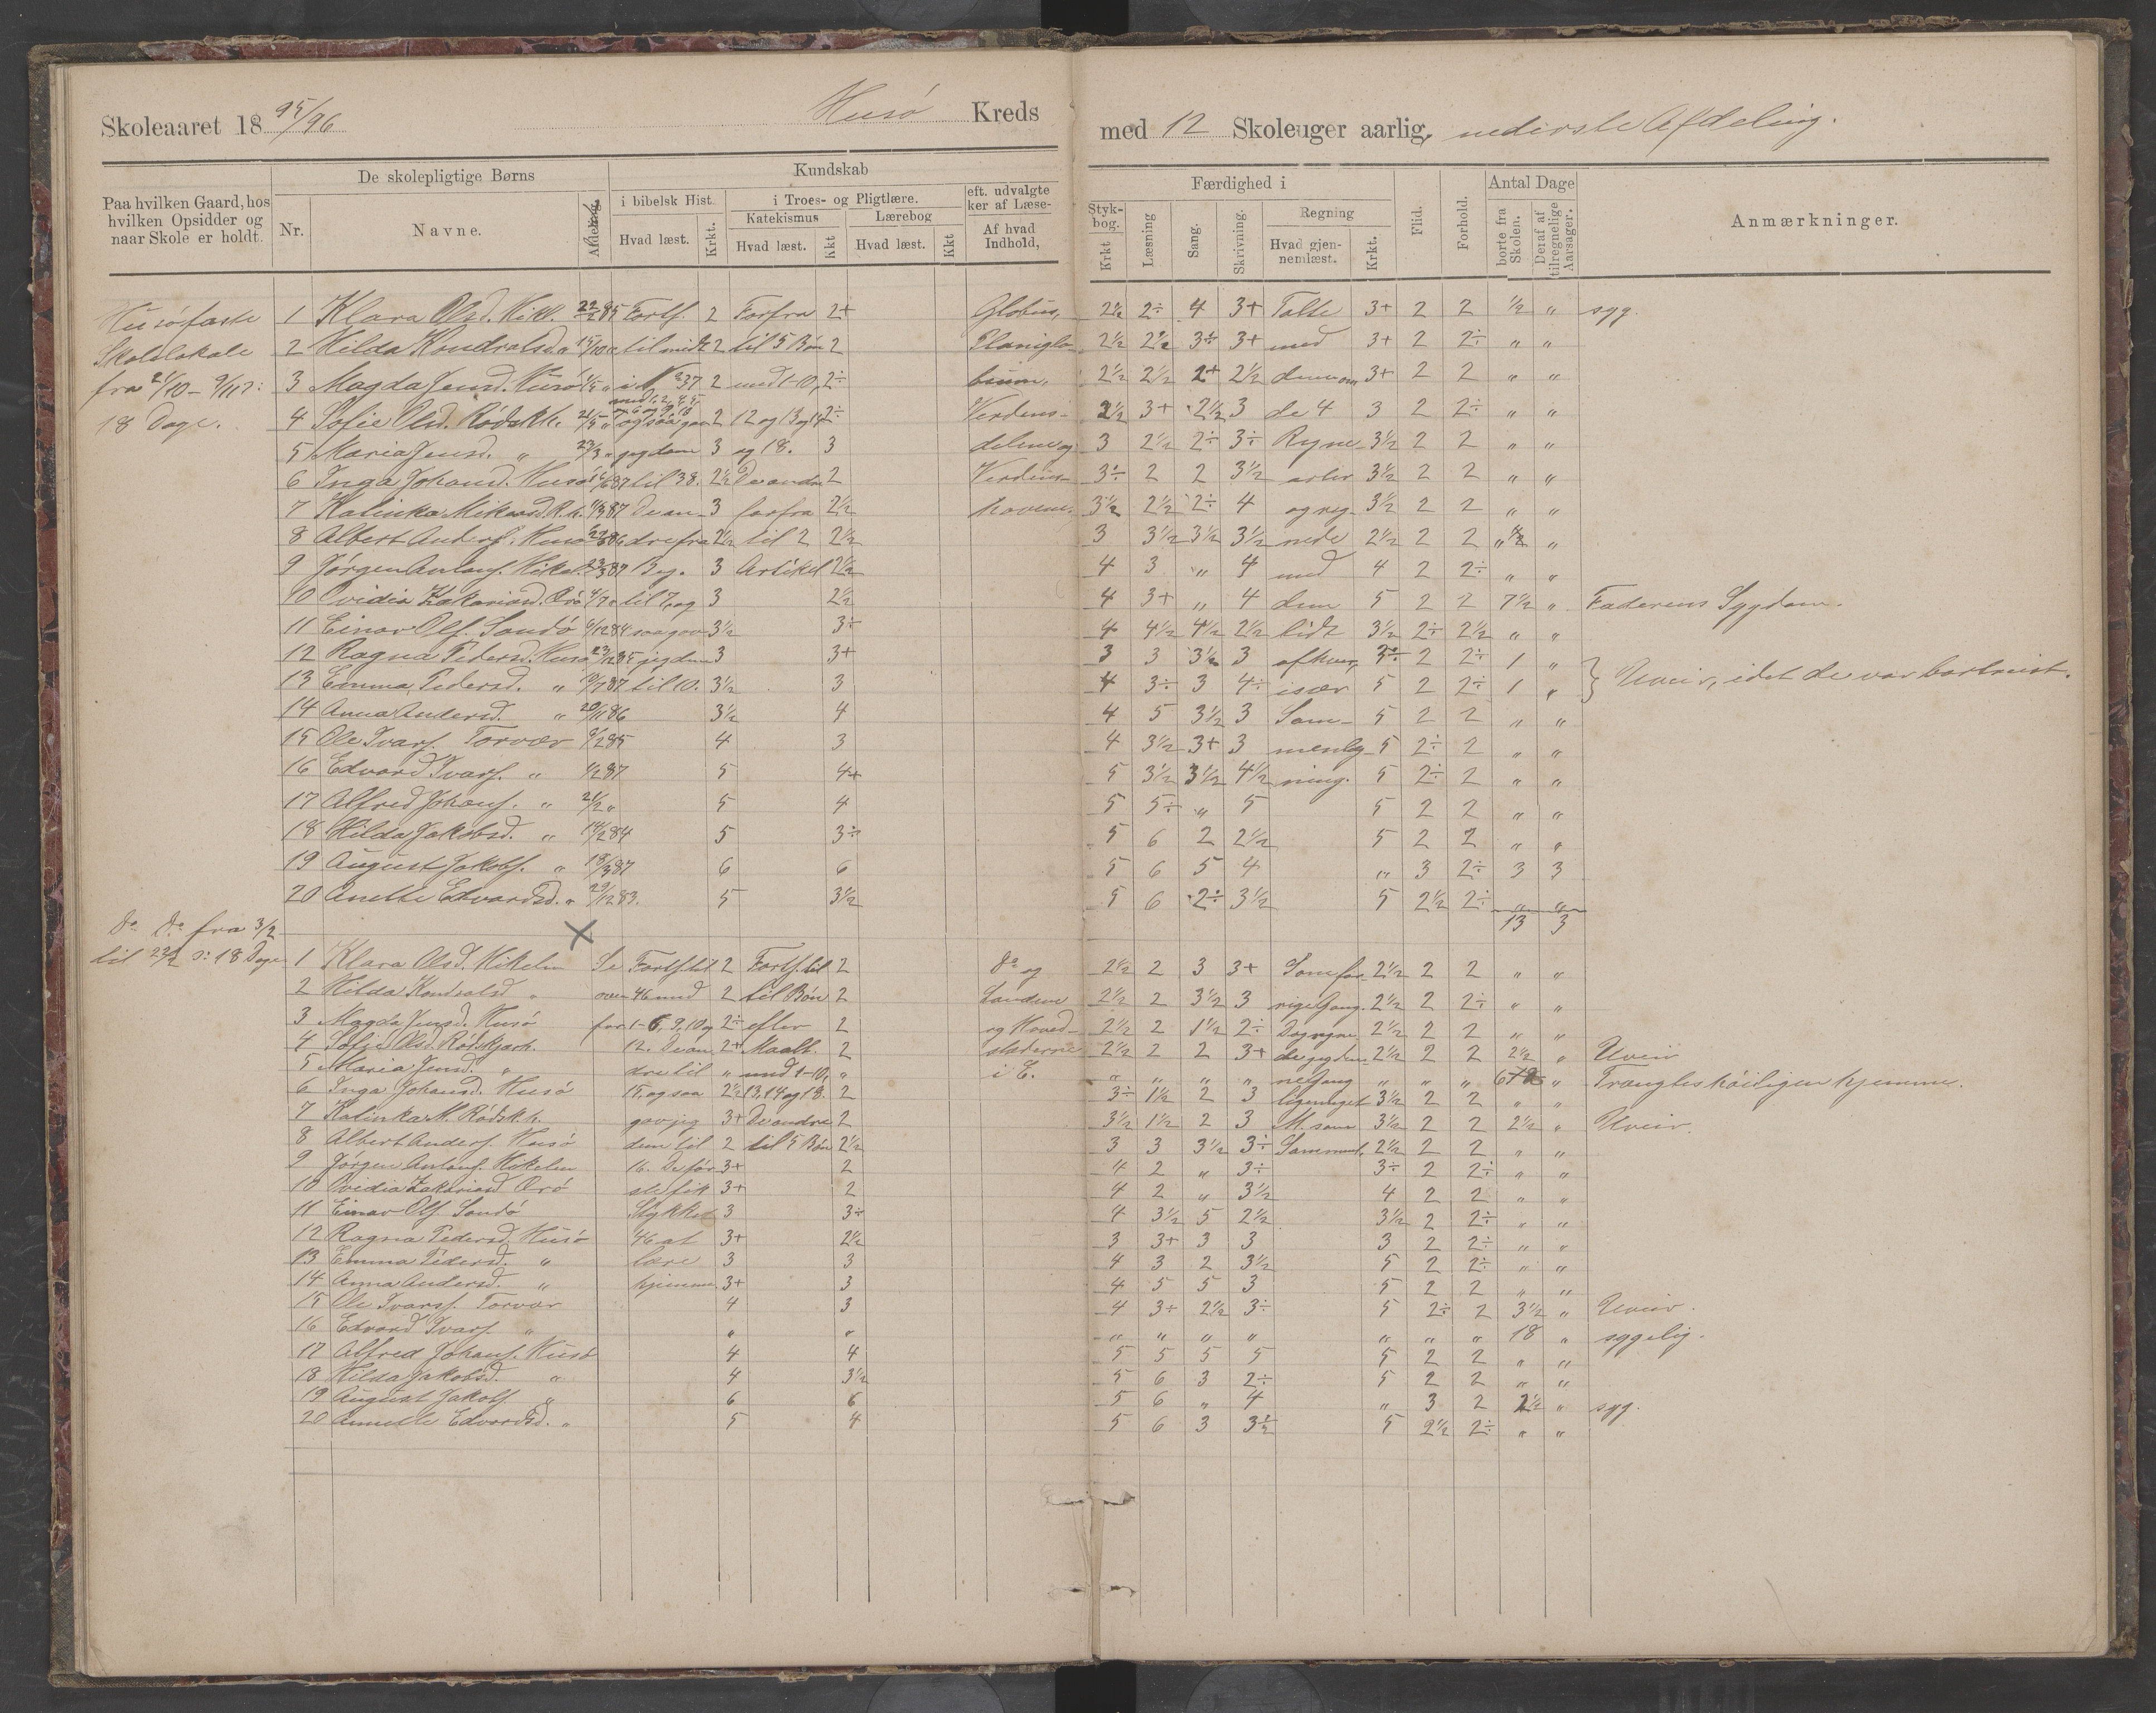 Skoleaaret 1895/96 Husö Kreds med 12 Skoleuger aarlig, nederste Afdeling.
Paa hvilken Gaard, hos hvilken Opsidder og naar Skole er holdt.
De skolepligtige Børns
Nr. Navne. Afdeling.
Kundskab
i bibelsk Hist. Hvad læst. Krkt.
i Troes- og Pligtlære.
Katekismus Hvad læst. Kkt
Lærebog Hvad læst. Kkt
eft. udvalgte ker af Læse- Af hvad Indhold,
Styk- bog. Krkt
Færdighed i
Læsning Sang. Skrivning. Regning Hvad gjen- nemlæst. Krkt.
Flid. Forhold.
Antal Dage
borte fra Skolen. Deraf af tilregnelige Aarsager.
Anmærkninger.
Husö faste
Skolelokale
fra 21/10 - 9/11 :
18 Dage.
1 Klara Olsd. Hikl. 22/2 85 Fortf. 2 Forfra 2+ Globus, 2½ 2÷ 4 3+ Talte 3+ 2 2 ½ " syg.
2 Hilda Kondratsd. " til midt 2 til 5 Bön 2 Planiglo- 2½ 2½ 3÷ 3+ med 3+ 2 2÷ " "
3 Magda Jensd. Husö " i N 37 2 med 1-10, 2÷ bium. 2½ 2½ 2+ 2½ dem om 3+ 2 2 " "
4 Sofie Olsd. Rödskh. " og saa gav 2 12 og 13 og 14 2÷ Verdens- 2½ 3+ 2½ 3 de 4 3 2 2÷ " "
5 Maria Jensd. " 23/3 " jeg dem 3 og 18. 3 delene og 3 2½ 2÷ 3÷ Regne- 3½ 2 2 " "
6 Inga Johansd. Husö 87 til 38. 2½ De andre 2 Verdens- 3÷ 2 2 3½ arter 3½ 2 2 " "
7 Kalinka Mikaelsd. R.h. 87 De an- 3 forfra 2½ havene. 3½ 2½ 2÷ 4 og reg- 3½ 2 2 " "
8 Albert Anders. Husö 86 dre fra 2½ til 2 2½ 3 3½ 3½ 3½ nede 2½ 2 2 ½ "
9 Jörgen Antons. Hikel. 87 Beg. 3 Artikel 2½ 4 3 " 4 med 4 2 2÷ " "
10 Ovidia Zakariasd. Örö 4/7 " til 7, og 3 2½ 4 3+ " 4 dem 5 2 2 7½ " Faderens Sygdom.
11 Einar Ols. Sandö 6/12 84 saa gav 3½ 3÷ 4 4½ 4½ 2½ lidt 3½ 2÷ 2½ " "
12 Ragna Pedersd. Husö 23/12 85 jeg dem 3 3+ 3 3 3½ 3 af hver, 3÷ 2 2÷ 1 "
13 Emma Pedersd. " 87 til 10. 3½ 3 4 3÷ 3 4÷ især 5 2 2÷ 1 " } Uveir, idet de var bortreist.
14 Anna Andersd. " 20/11 86 3½ 4 4 5 3½ 3 Sam- 5 2 2 " "
15 Ole Ivars. Torvær 85 4 3 4 3½ 3+ 3 menlig- 5 2÷ 2 " "
16 Edvard Ivars. " 87 5 4+ 5 3½ 3½ 4½ ning. 5 2÷ 2 " "
17 Alfred Johans. " 21/2 " 5 4 5 5÷ " 5 5 2 2 " "
18 Hilda Jakobsd. " 14/2 84 5 3÷ 5 6 2 2½ 5 2 2 " "
19 August Jakobs. " 18/3 87 6 6 5 6 5 4 " 3 2÷ 3 3
20 Anette Edvardsd. " 29/12 83. 5 3½ 5 6 2÷ 3½ 5 2½ 2÷ " "
13 3
Do. Do. fra 3/2
til 22/2 : 18 Dage
1 Klara Olsd. Hikelm Se Fortf. til 2 Fortf. til 2 Do. og 2½ 2 3 3+ Som for- 2½ 2 2 " "
2 Hilda Kondratsd " oven 46 med 2 til Bön 2 Landene 2½ 2 3½ 3 rige Gang. 2½ 2 2÷ " "
3 Magda Jensd. Husö for 1-6, 9, 10 og 2÷ efter 2 og Hoved- 2½ 2 1½ 2÷ 2½ 2 2 " "
4 Sofie Olsd. Rödskjærh. 12. De an 2+ Maalt. 2 stæderne 2½ 2 2 3+ 2½ 2 2 2½ " Uveir
5 Maria Jensd. " dre til " med 1-10, " i E. " " " " ne Gang " " " " Trængtes höiligen hjemme.
6 Inga Johansd. Husö 15, og saa 2½ 13, 14 og 18. 2 3÷ 1½ 2 3 3½ 2 2 " "
7 Kalinka M. Rödsk.h. gav jeg 3+ De andre 2 3½ 1½ 2 3 3½ 2 2 2½ " Uveir.
8 Albert Anders. Husö dem til 2 til 5 Bön 2½ 3 3 3½ 3÷ 2½ 2 2 " "
9 Jörgen Antons. Hikelm 16. De för- 3+ 2 4 2 " 3÷ 3÷ 2 2÷ " "
10 Ovidia Zakariasd Örö ste fik 3+ 2 4 2 " 3½ 4 2 2 " "
11 Einar Ols. Sandö Stykket 3 3÷ 4 3½ 5 2½ 3½ 2 2÷ " "
12 Ragna Pedersd. Husö 46 at 3+ 2½ 3 3+ 3 3 3 2 2÷ " "
13 Emma Pedersd. " lære 3 3 4 3 2 3½ 5 2 2÷ " "
14 Anna Andersd. " hjemme 3+ 3 4 5 5 3 5 2 2 " "
15 Ole Ivars. Torvær 4 3 4 3+ 2½ 3÷ 5 2÷ 2 3½ " Uveir.
16 Edvard Ivars. " " " " " " " " " " 18 " sygelig.
17 Alfred Johans. Husö 4 4 5 5 5 5 5 2 2 " "
18 Hilda Jakobsd. " 4 3½ 5 6 3 2÷ 5 2 2 " "
19 August Jakobs. " 6 6 5 6 " 4 " 3 2 2½ " syg.
20 Annette Edvardsd. " 5 4 5 6 3 3½ 5 2½ 2÷ " "